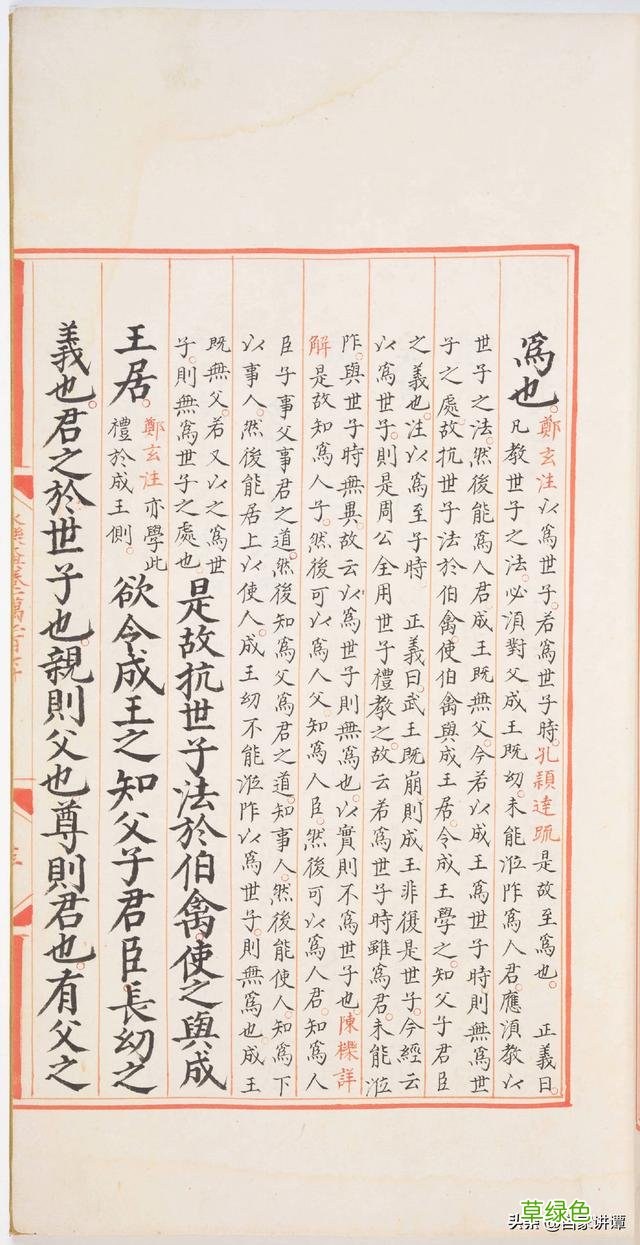 爲也。
鄭玄注以爲世子。若爲世子時。孔穎達疏是故至爲也。 正義曰。
凡教世子之法。必須對父。成王既幼。未能涖阼爲人君。應須教以
世子之法。然後能爲人君。成王既無父。今若以成王爲世子時則無爲世
子之處。故抗世子法於伯禽。使伯禽與成王居。令成王學之。知父子君臣
之義也。注以爲至子時 正義曰。武王既崩則成王非復是世子。今經云
以爲世子。則是周公全用世子禮教之。故云若爲世子時雖爲君。未能涖
阼。與世子時無異。故云以爲世子則無爲也。以實則不爲世子也。陳櫟詳
解是故知爲人子。然後可以爲人父。知爲人臣。然後可以爲人君。知爲人
臣子事父事君之道。然後知爲父爲君之道。知事人。然後能使人。知爲下
以事人。然後能居上以使人。成王幼不能涖阼以爲世子。則無爲也。成王
既無父。若又以之爲世
子。則無爲世子之處也
是故抗世子法於伯禽。使之與成
王居。
鄭玄注亦學此
禮於成王側。
欲令成王之知父子君臣。長幼之
義也。君之於世子也。親則父也尊則君也。有父之
草绿色